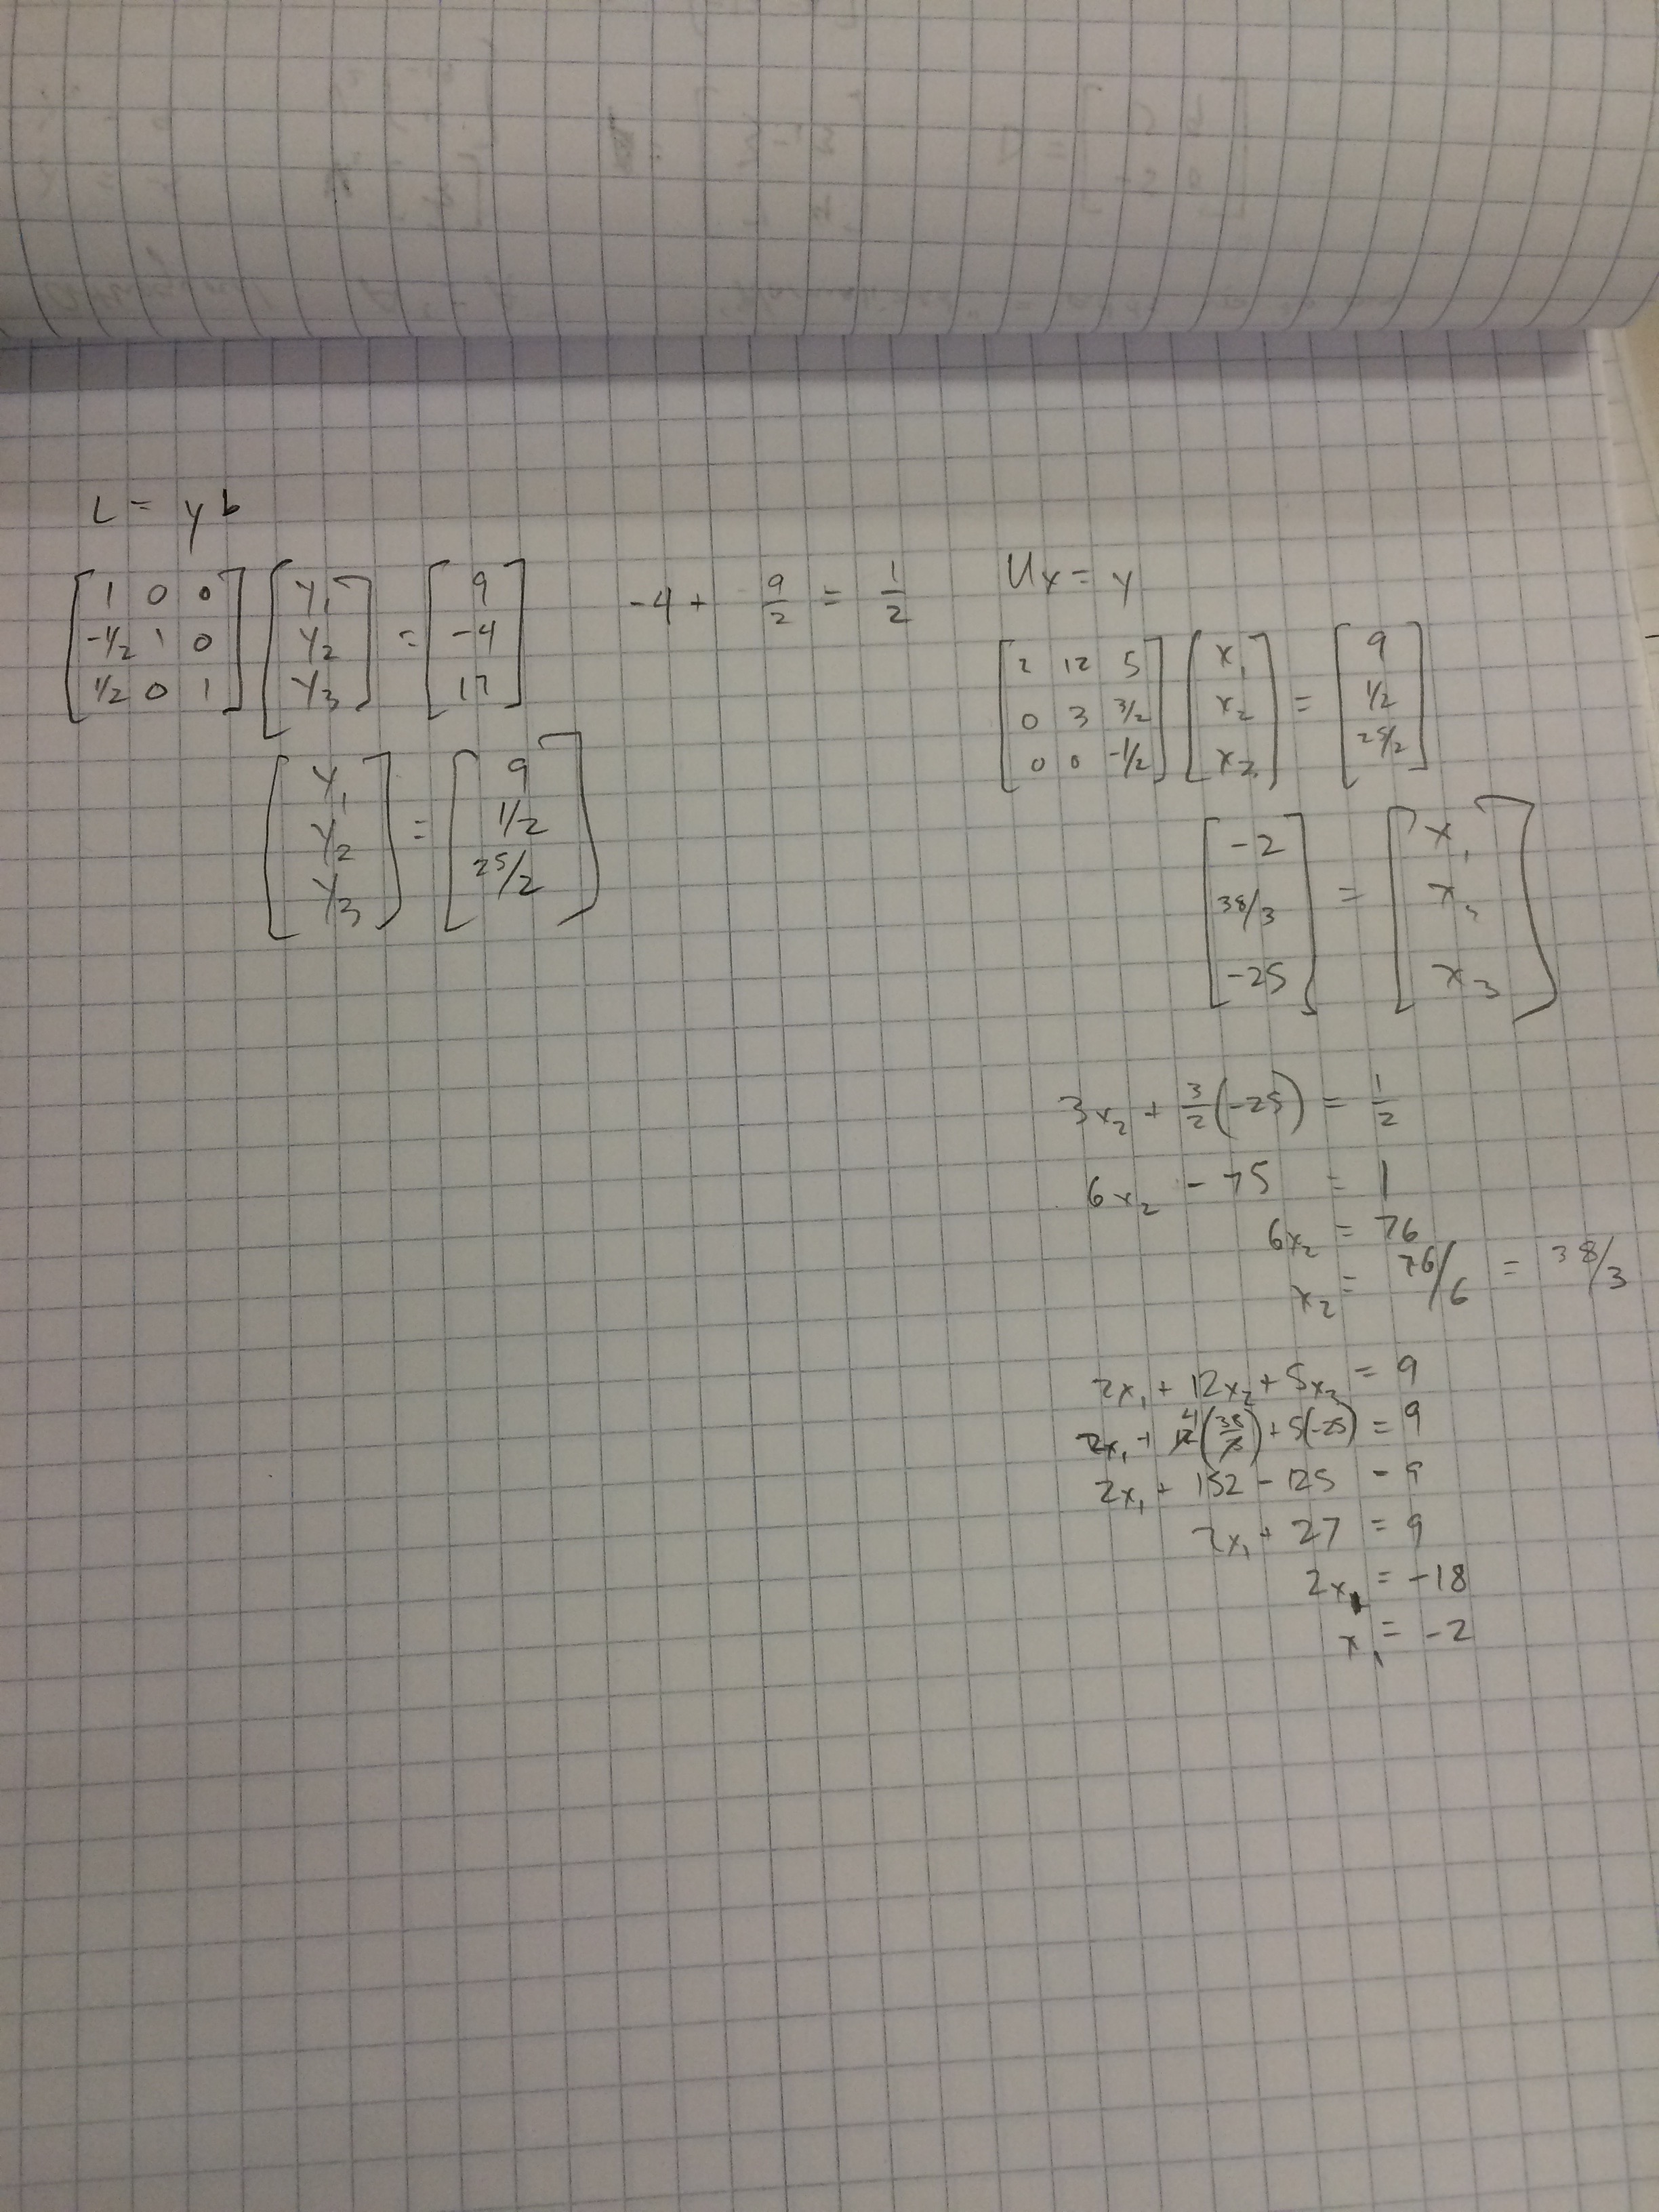 L = y b
[1 0 0; -1/2 1 0; 1/2 0 1] [y₁; y₂; y₃] = [9; -4; 17]
-4 + 9/2 = 1/2
[y₁; y₂; y₃] = [9; 1/2; 25/2]
Ux = y
[2 12 5; 0 3 3/2; 0 0 -1/2] [x₁; x₂; x₃] = [9; 1/2; 25/2]
[-2; 38/3; -25] = [x₁; x₂; x₃]
3x₂ + 3/2(-25) = 1/2
6x₂ - 75 = 1
6x₂ = 76
x₂ = 76/6 = 38/3
2x₁ + 12x₂ + 5x₃ = 9
2x₁ + 12 4(38/3) + 5(-25) = 9
2x₁ + 152 - 125 = 9
2x₁ + 27 = 9
2x₁ = -18
x₁ = -2